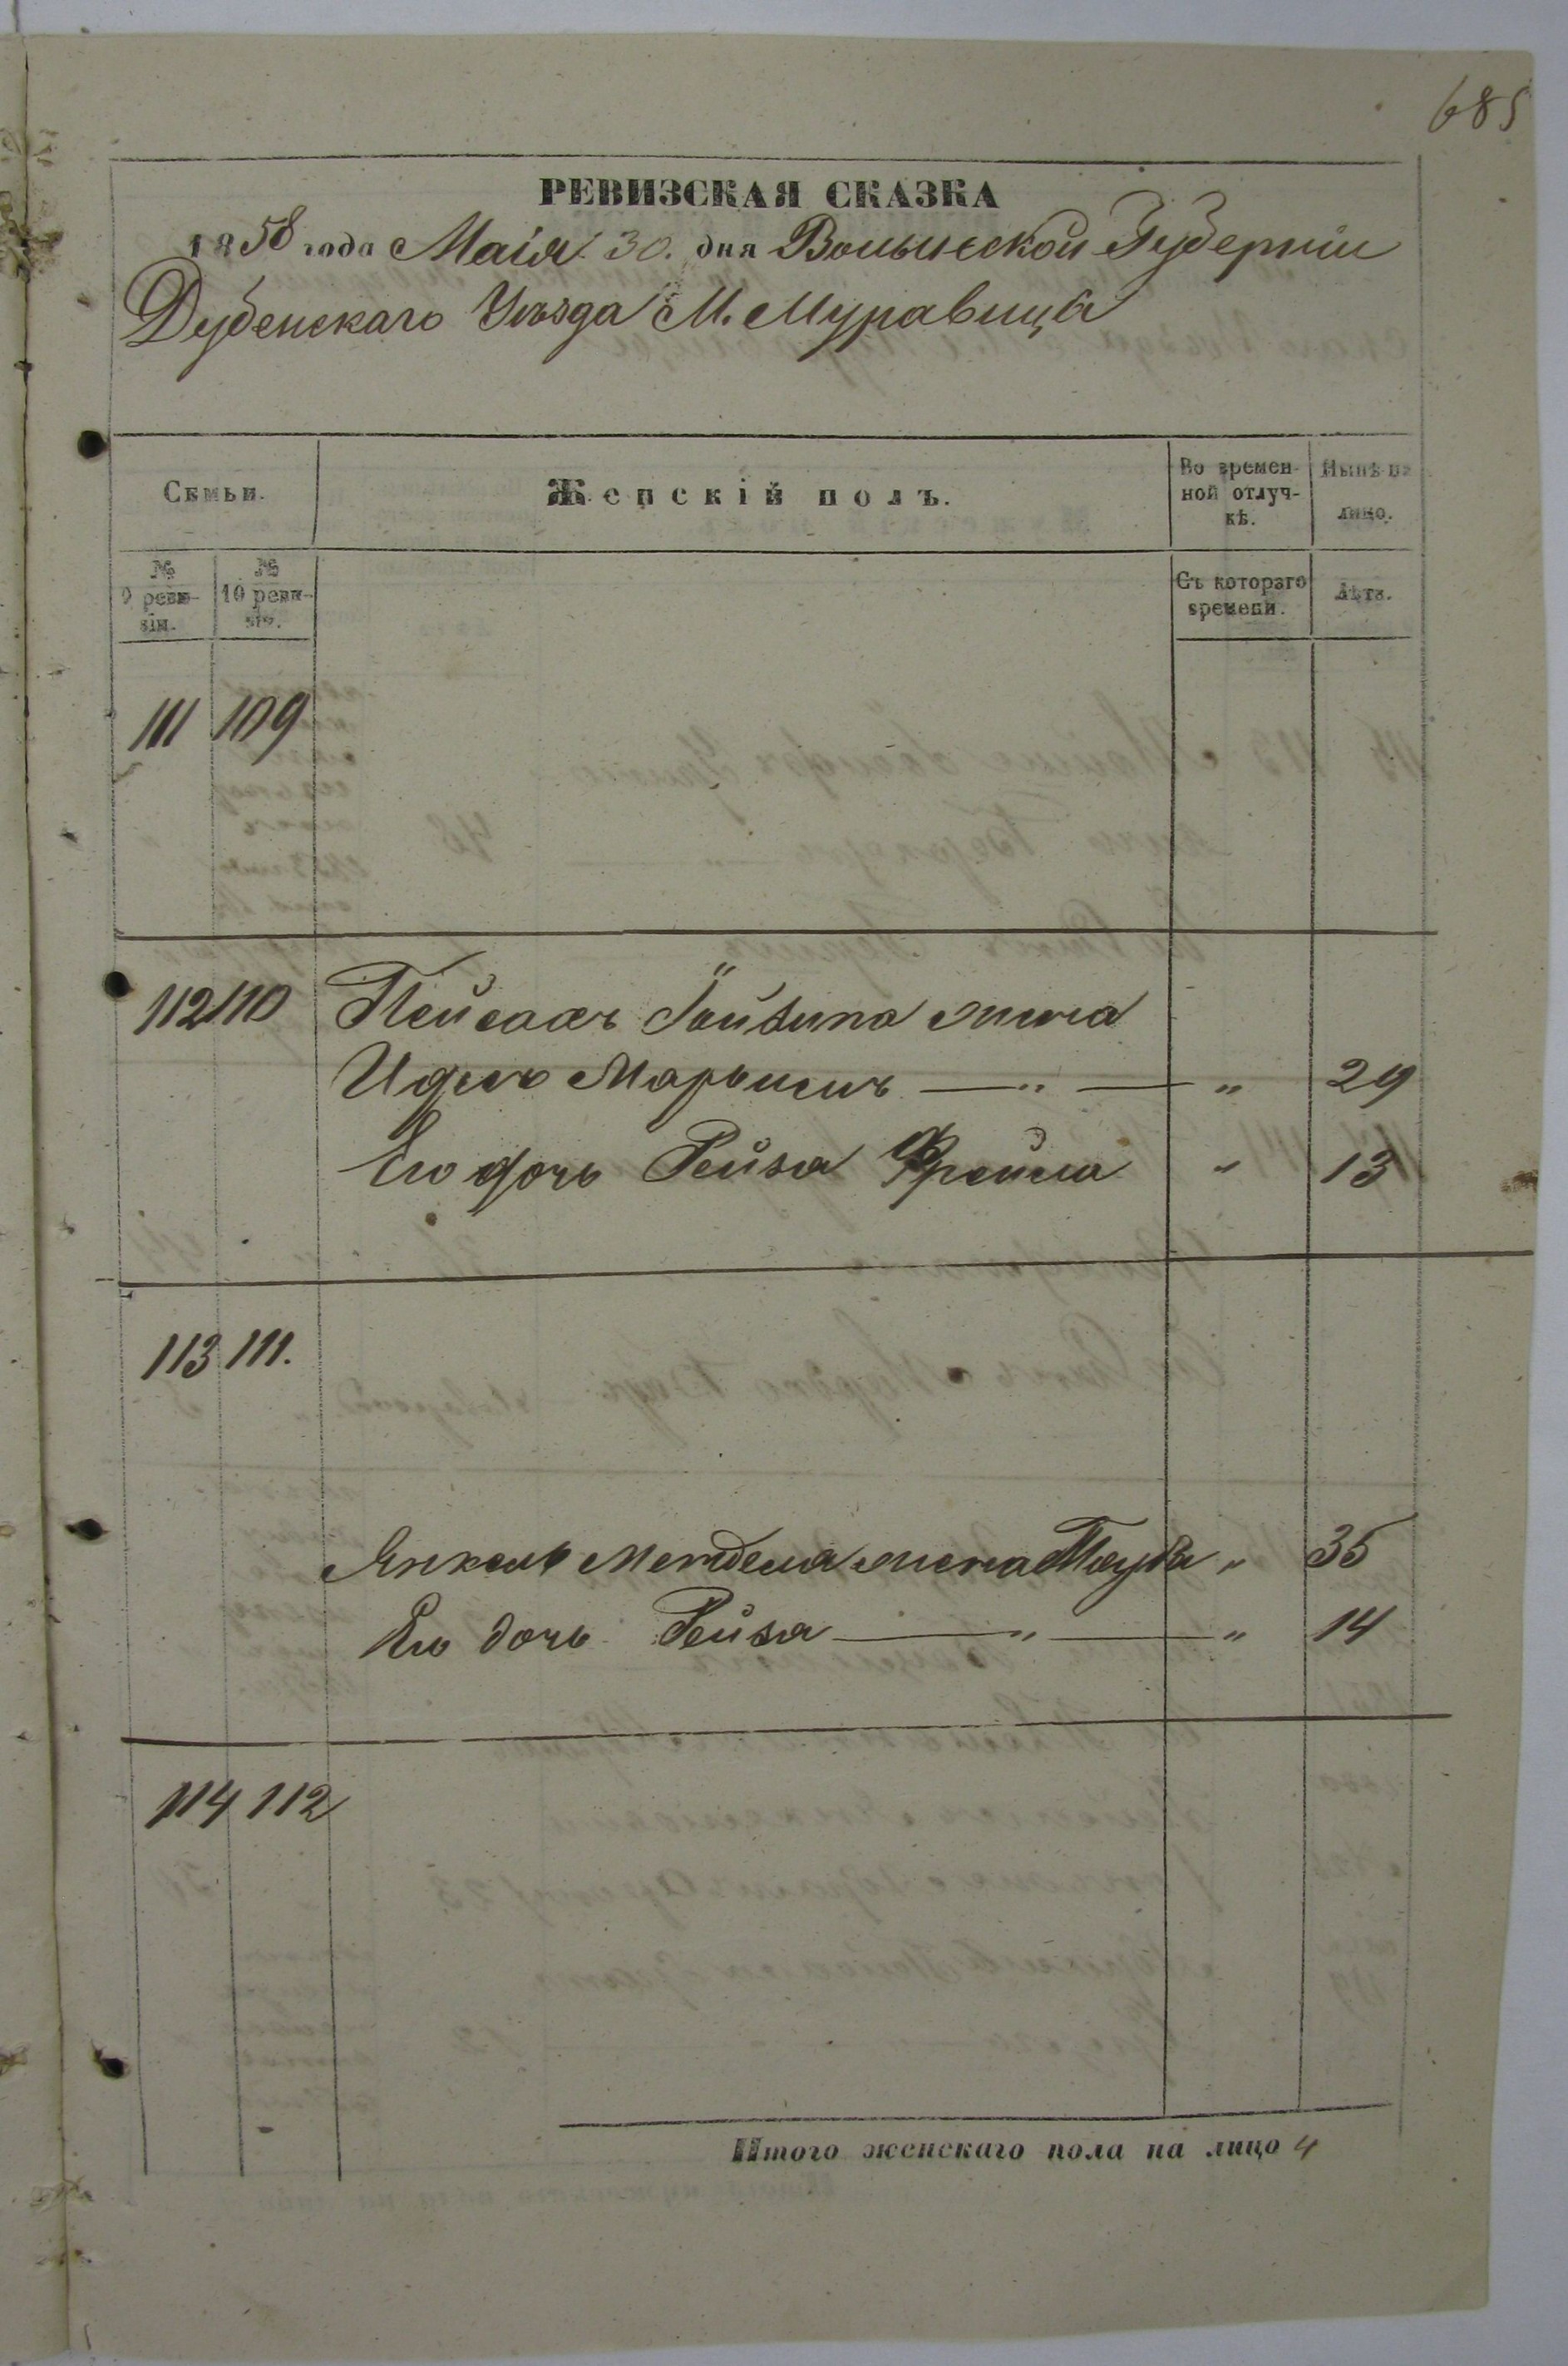 685
РЕВИЗСКАЯ СКАЗКА
1858 года Маія 30. дня Волынской Губерніи
Дубенскаго Уѣзда М. Муравица
Семьи.
Женскій полъ.
Во времен-
ной отлуч-
кѣ.
Нынѣ на
лицо.
№
9 реви-
зіи.
№
10 реви-
зіи.
Съ котораго
времени.
Лѣта.
111 109
112 110 Пейсахъ жена
Марьимъ — „ — „ 29
Его дочь Рейза Фрейма „ 13
113 111.
Янкель Мендела жена Тауба „ 35
Его дочь Рейза — „ — „ 14
114 112
Итого женскаго пола на лицо 4